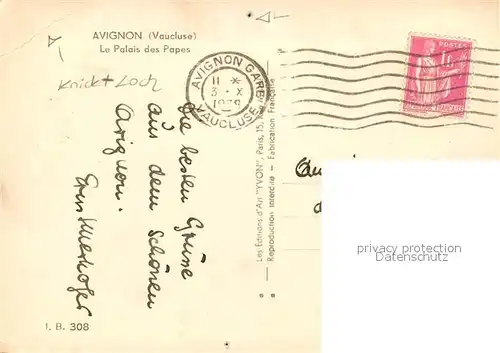 AVIGNON (Vaucluse)
Le Palais des Papes
Knick + Loch
AVIGNON GARE
11 *
3 - X
1938
VAUCLUSE
POSTES
Die besten Grüsse
aus dem schönen
Avignon.
Les Editions d'Art "YVON", Paris, 15, Rue
Reproduction Interdite — Fabrication Française
privacy protection
Datenschutz
I. B. 308